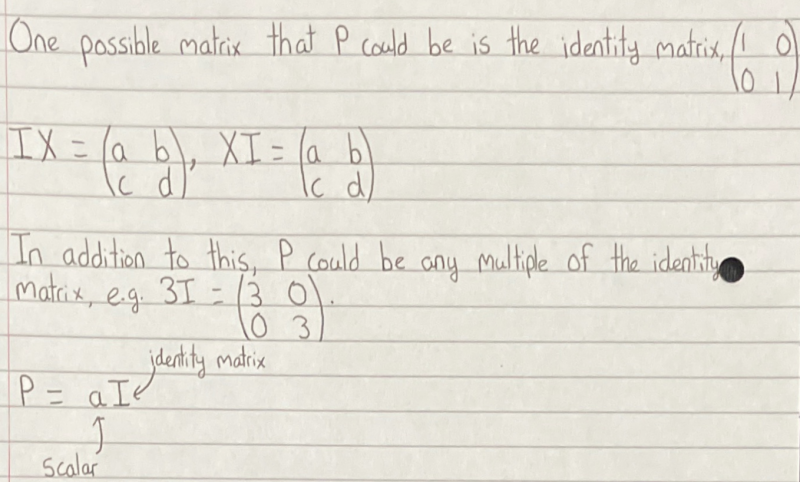 One possible matrix that P could be is the identity matrix, (1 0
0 1)
IX = (a b
c d), XI = (a b
c d)
In addition to this, P could be any multiple of the identity
matrix, e.g. 3I = (3 0
0 3).
identity matrix
P = aI
scalar